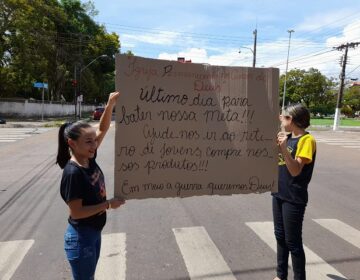 Igreja Pentecostal
Deus
Último dia para
bater nossa meta!!!
Ajude nos ir ao reti
ro de Jovens, compre nos
sos produtos!!!
Em meio a guerra queremos Deus!